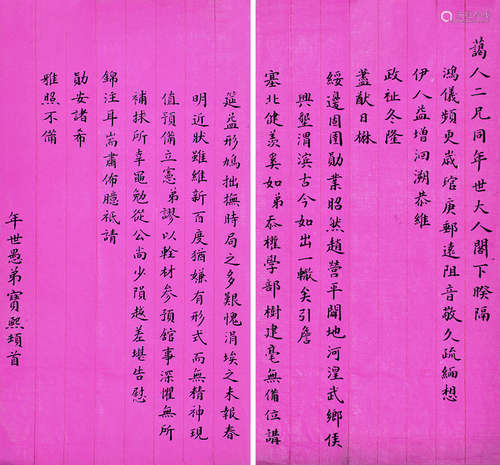 蔼人二兄同年世大人閣下睽隔
鴻儀頻更歲琯庚郵遠阻音敬久疏緬想
伊人益增洄溯恭維
政祉冬隆
蓋猷日楙
綏邊固圉勛業昭然趙營平開地河湟武鄉侯
興墾渭濱古今如出一轍矣引詹
塞北健羨奚如弟忝權學部樹建毫無備位講
筵益形鳩拙撫時局之多艱愧涓埃之未報春
明近狀雖維新百度猶嫌有形式而無精神現
值預備立憲弟謬以輇材參預館事深懼無所
補捄所幸黽勉從公尚少隕越差堪告慰
錦注耳耑肅佈臆祇請
勛安諸希
雅照不備
年世愚弟寶熙頓首